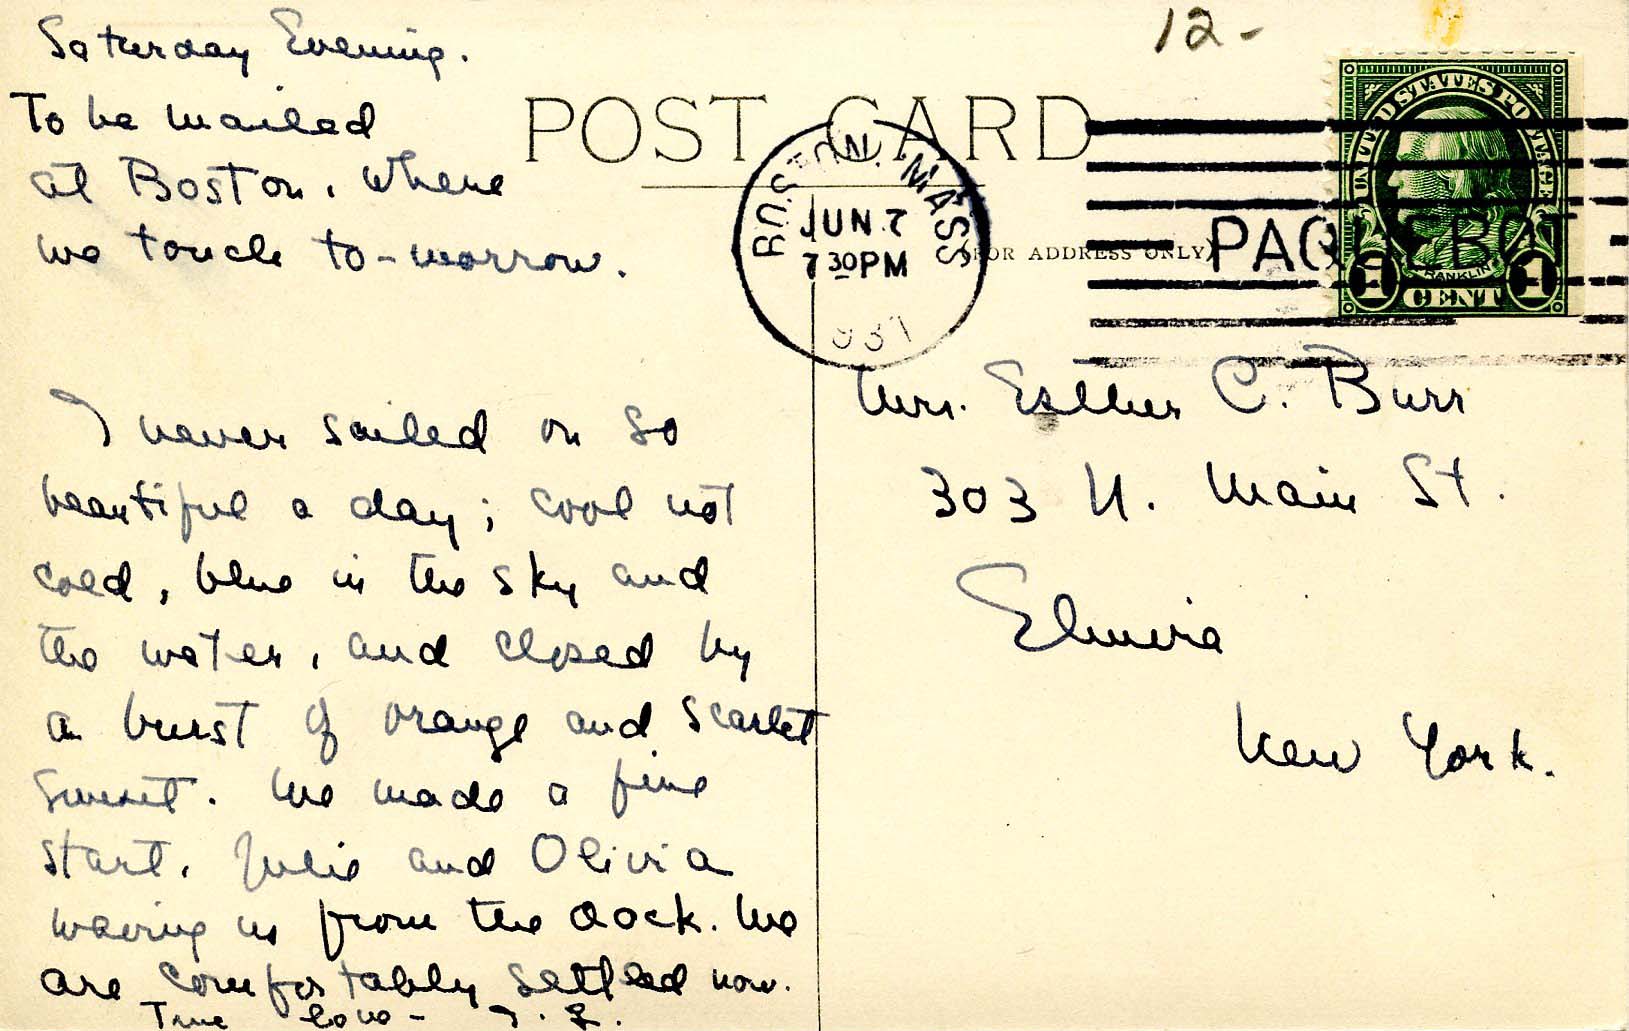 Saturday Evening.
To be mailed
at Boston, where
we touch to-morrow.
I never sailed on so
beautiful a day; cool not
cold, blue in the sky and
the water, and closed by
a burst of orange and scarlet
sunset. We made a fine
start, Julie and Olivia
waving us from the dock. We
are comfortably settled now.
True love -
12-
POST CARD
(FOR ADDRESS ONLY)
BOSTON, MASS
JUN 7
7 30 PM
PAQUEBOT
UNITED STATES POSTAGE
FRANKLIN
1 CENT 1
Mrs. Esther C. Burr
303 N. Main St.
Elmira
New York.